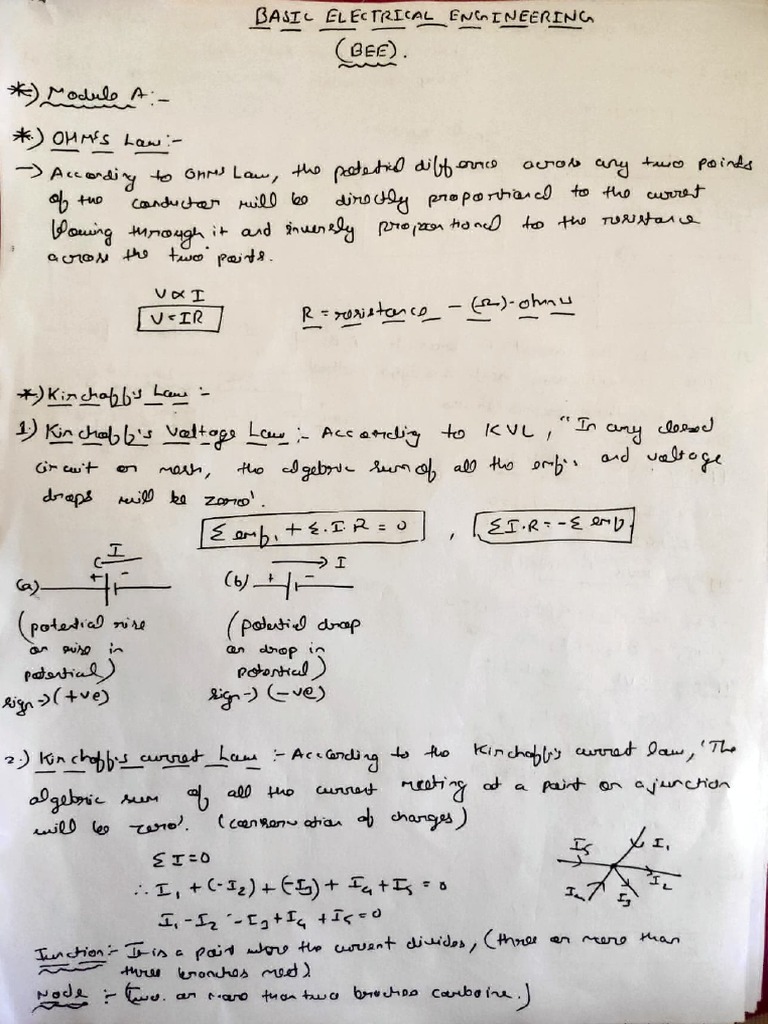 BASIC ELECTRICAL ENGINEERING
(BEE).
*) Module A:-
*.) OHM's Law:-
→ According to OHM's Law, the potential difference across any two points
of the conductor will be directly proportional to the current
flowing through it and inversely proportional to the resistance
across the two points.
V∝I
V=IR
R = resistance - (Ω) - ohm's
*.) Kirchoff's Law :-
1.) Kirchoff's Voltage Law :- According to KVL, "In any closed
circuit or mesh, the algebric sum of all the emf's and voltage
drops will be zero'.
Σ emf. + Σ.I.R = 0 , ΣI.R = -Σ emf.
I
(a) + -
(b) + - → I
(potential rise
or rise in
potential)
sign→(+ve)
(potential drop
or drop in
potential)
sign→(-ve)
2.) Kirchoff's current Law :- According to the Kirchoff's current law, 'The
algebric sum of all the current meeting at a point or a junction
will be zero'. (conservation of charges)
ΣI=0
∴ I1 + (-I2) + (-I3) + I4 + I5 = 0
I1 - I2 - I3 + I4 + I5 = 0
I5 I1
I4 I3 I2
Junction:- It is a point where the current divides, (three or more than
three branches meet)
Node :- (Two. or more than two branches combine.)